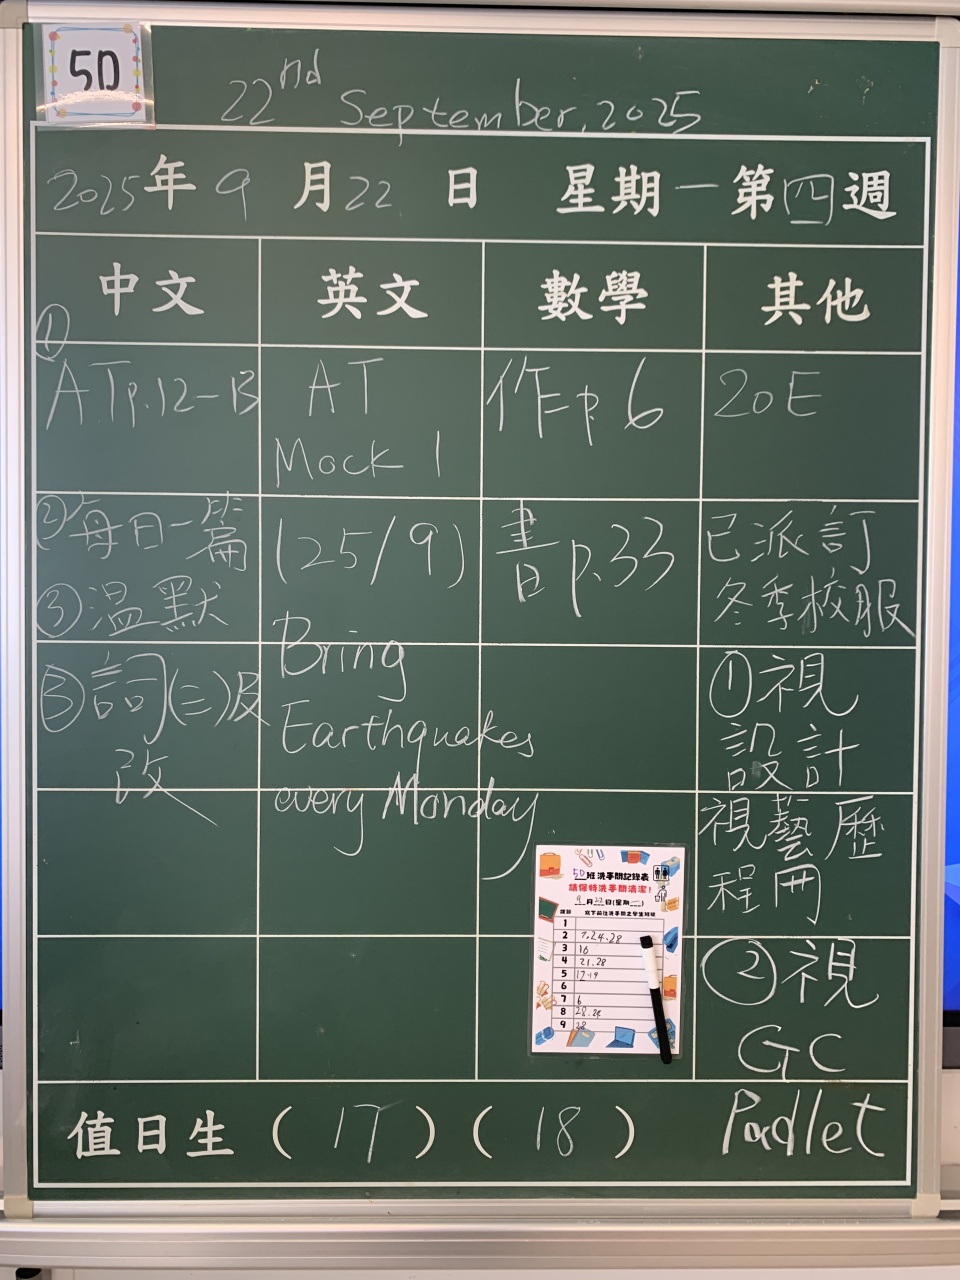 5D
22nd September, 2025
2025年9月22日 星期一第四週
中文 英文 數學 其他
①
AT p.12-13
②每日一篇
③溫默
③詞(三)及
改
AT
Mock 1
(25/9)
Bring
Earthquakes
every Monday
作 p. 6
書 p.33
20E
已派訂
冬季校服
①視
設計
視藝歷
程冊
②視
GC
Padlet
5D班洗手間記錄表
請保持洗手間清潔!
9月22日(星期一)
課節 寫下前往洗手間之學生班號
1
2 7.24.28
3 16
4 21.28
5 17.19
6
7 6
8 28.24
9 28
值日生 (17)(18)